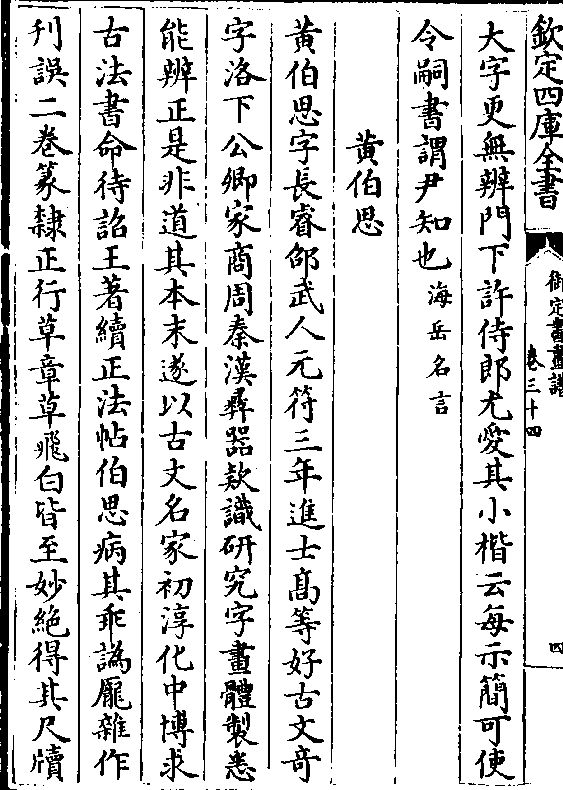 欽定四庫全書
御定書畫譜
卷三十四
四
大字更無辨門下許侍郎尤愛其小楷云每示簡可使
令嗣書謂尹知也海岳名言
黄伯思
黄伯思字長睿邵武人元符三年進士髙等好古文竒
字洛下公卿家商周秦漢彞器欵識研究字畫體製悉
能辨正是非道其本末遂以古文名家初淳化中博求
古法書命待詔王著續正法帖伯思病其乖譌龎雜作
刋誤二卷篆隸正行草章草飛白皆至妙絶得其尺牘